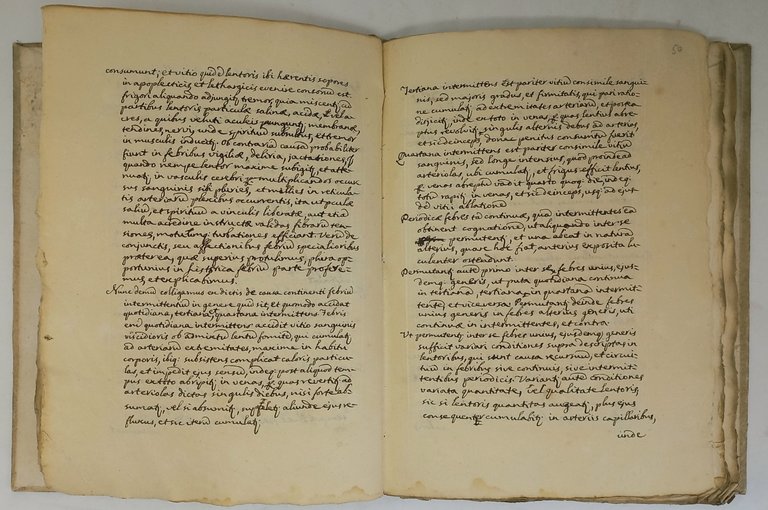 consumunt; et vitio quod d lentoris ibi hærentis sopores
in apoplecticis, et lethargicis evenire consonũ est.
frigori aliquando adjungitʒ tremor, quia miscentʒ cũ
partibus lentoris particulæ salinæ, acidæ, et vola-
cres, a quibus veluti aculeis punguntʒ membranæ,
tendines, nervi, unde spirituũ subsultus, et tremor
in musculis inducitʒ. ob contrariã causã probabiliter
fiunt in febribus vigiliæ, deliria, jactationes,
quando nempe lentor maxime subigitʒ, et atte-
nuatʒ, in vasculis cerebri multiplicandos occur
sus sanguinis sibi plures, et mellies in reticula-
tis arteriarũ plexibus occurrentis, ita ut particulæ
saliũ, et spirituũ a vinculis liberatæ, aut etiã
multa acredine instructæ validas fibrarũ ten-
siones, motuũmq turbationes efficiant. Verũ de
conjunctis, seu affectionibus febriũ specialioribus
præter ea, quæ superius protulimus, plura op-
portunius in historica febriũ parte profere-
mus, et explicabimus.
Nunc demũ colligamus ex dictis de causa continenti febriũ
intermittentiũ in genere quid sit, et quomodo accidat
quotidiana, tertiana, quartana intermittens. Febris
enĩ quotidiana intermittens accidit vitio sanguinis
viscidioris ob admixtũ lentũ fomitẽ, qui cumulatʒ
ad arteriarũ extremitates, maxime in habitu
corporis, ibiq: subsistens complicat caloris particu-
las, et impedit ejus sensũ, indeq: post aliquod tem-
pus ex toto abripitʒ in venas, et quas revertitʒ ad
arteriolas dictas singulis diebus, nisi forte ab-
sumatʒ, vel si absumitʒ, suppetat aliunde ejus re-
fluxus, et sic iterũ cumulatʒ;
50
Tertiana intermittens est pariter vitiũ consimile sangui-
nis, sed majoris gradus, et firmitatis, qui pari ratio-
ne cumulatʒ ad extremitates arteriarũ, et postea
disjicitʒ inde ex toto in venas, quas lentus abre-
ptus revolvitʒ singulis alternis diebus ad arterias,
et sic deinceps, donec penitus consumtus fuerit.
Quartana intermittens est pariter consimile vitiũ
sanguinis, sed longe intensius, quod proinde ad
arteriolas, ubi cumulatʒ, et frigus efficit lentius,
et venas abreptũ vadit quarto quoq. die, indeq.
totũ rapitʒ in venas, et sic deinceps, usq. ad ejus-
dẽ vitii ablationẽ.
Periodicæ febres tũ continuæ, quã intermittentes eã
obtinent cognationẽ, ut aliquando inter se
permutentʒ, et una abeat in naturã
alterius, quare hoc fiat, anterius exposita lu-
culenter ostendunt.
Permutantʒ autẽ primo inter se febres unius, ejus-
demq. generis, ut puta quotidiana continua
in tertianã, tertiana in quartanã intermit-
tentẽ, et vice versa. Permutantʒ deinde febres
unius generis in febres alterius generis, uti
continuæ in intermittentes, et contra.
Ut permutentʒ inter se febres unius, ejusdemq. generis
sufficit variari conditiones supra descriptas in
lentoribus, qui sunt causa recursuũ, et circui-
tuũ in febribus sive continuis, sive intermit-
tentibus periodicis. Variantʒ autẽ conditiones
variata quantitate, vel qualitate lentoris,
sic si lentoris quantitas augeatʒ, plus ejus
consequenter cumulabitʒ in arteriis capillaribus,
unde